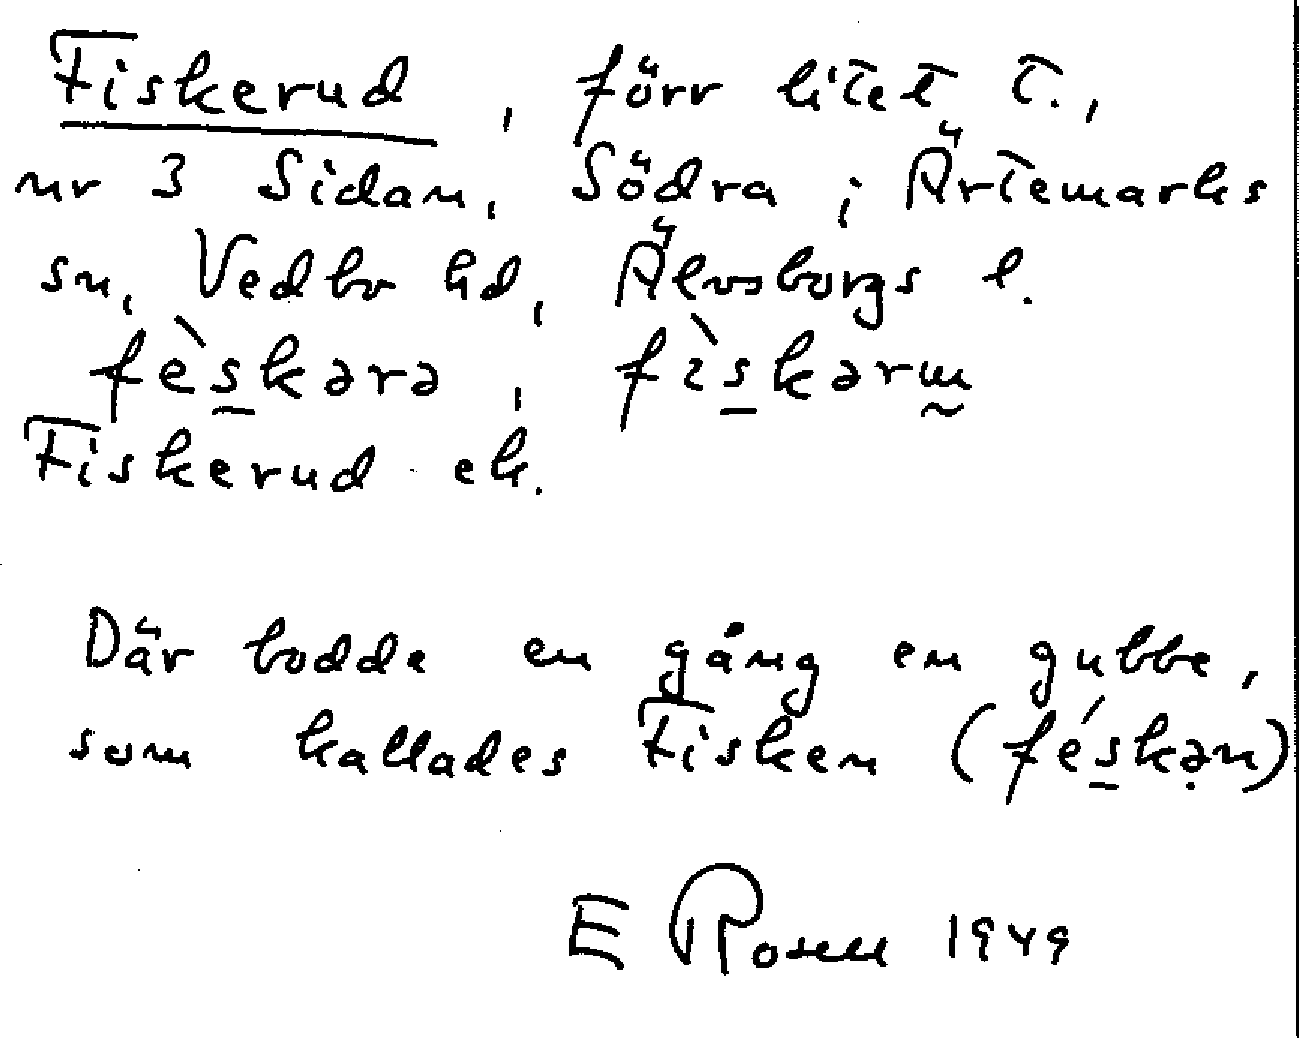 Fiskerud, förr litet t.,
nr 3 Sidan, Södra i Ärtemarks
sn, Vedbo hd, Älvsborgs l.
fèskərə, fìskərm
Fiskerud ek.
Där bodde en gång en gubbe,
som kallades Fisken (féskən)
E Rosell 1949